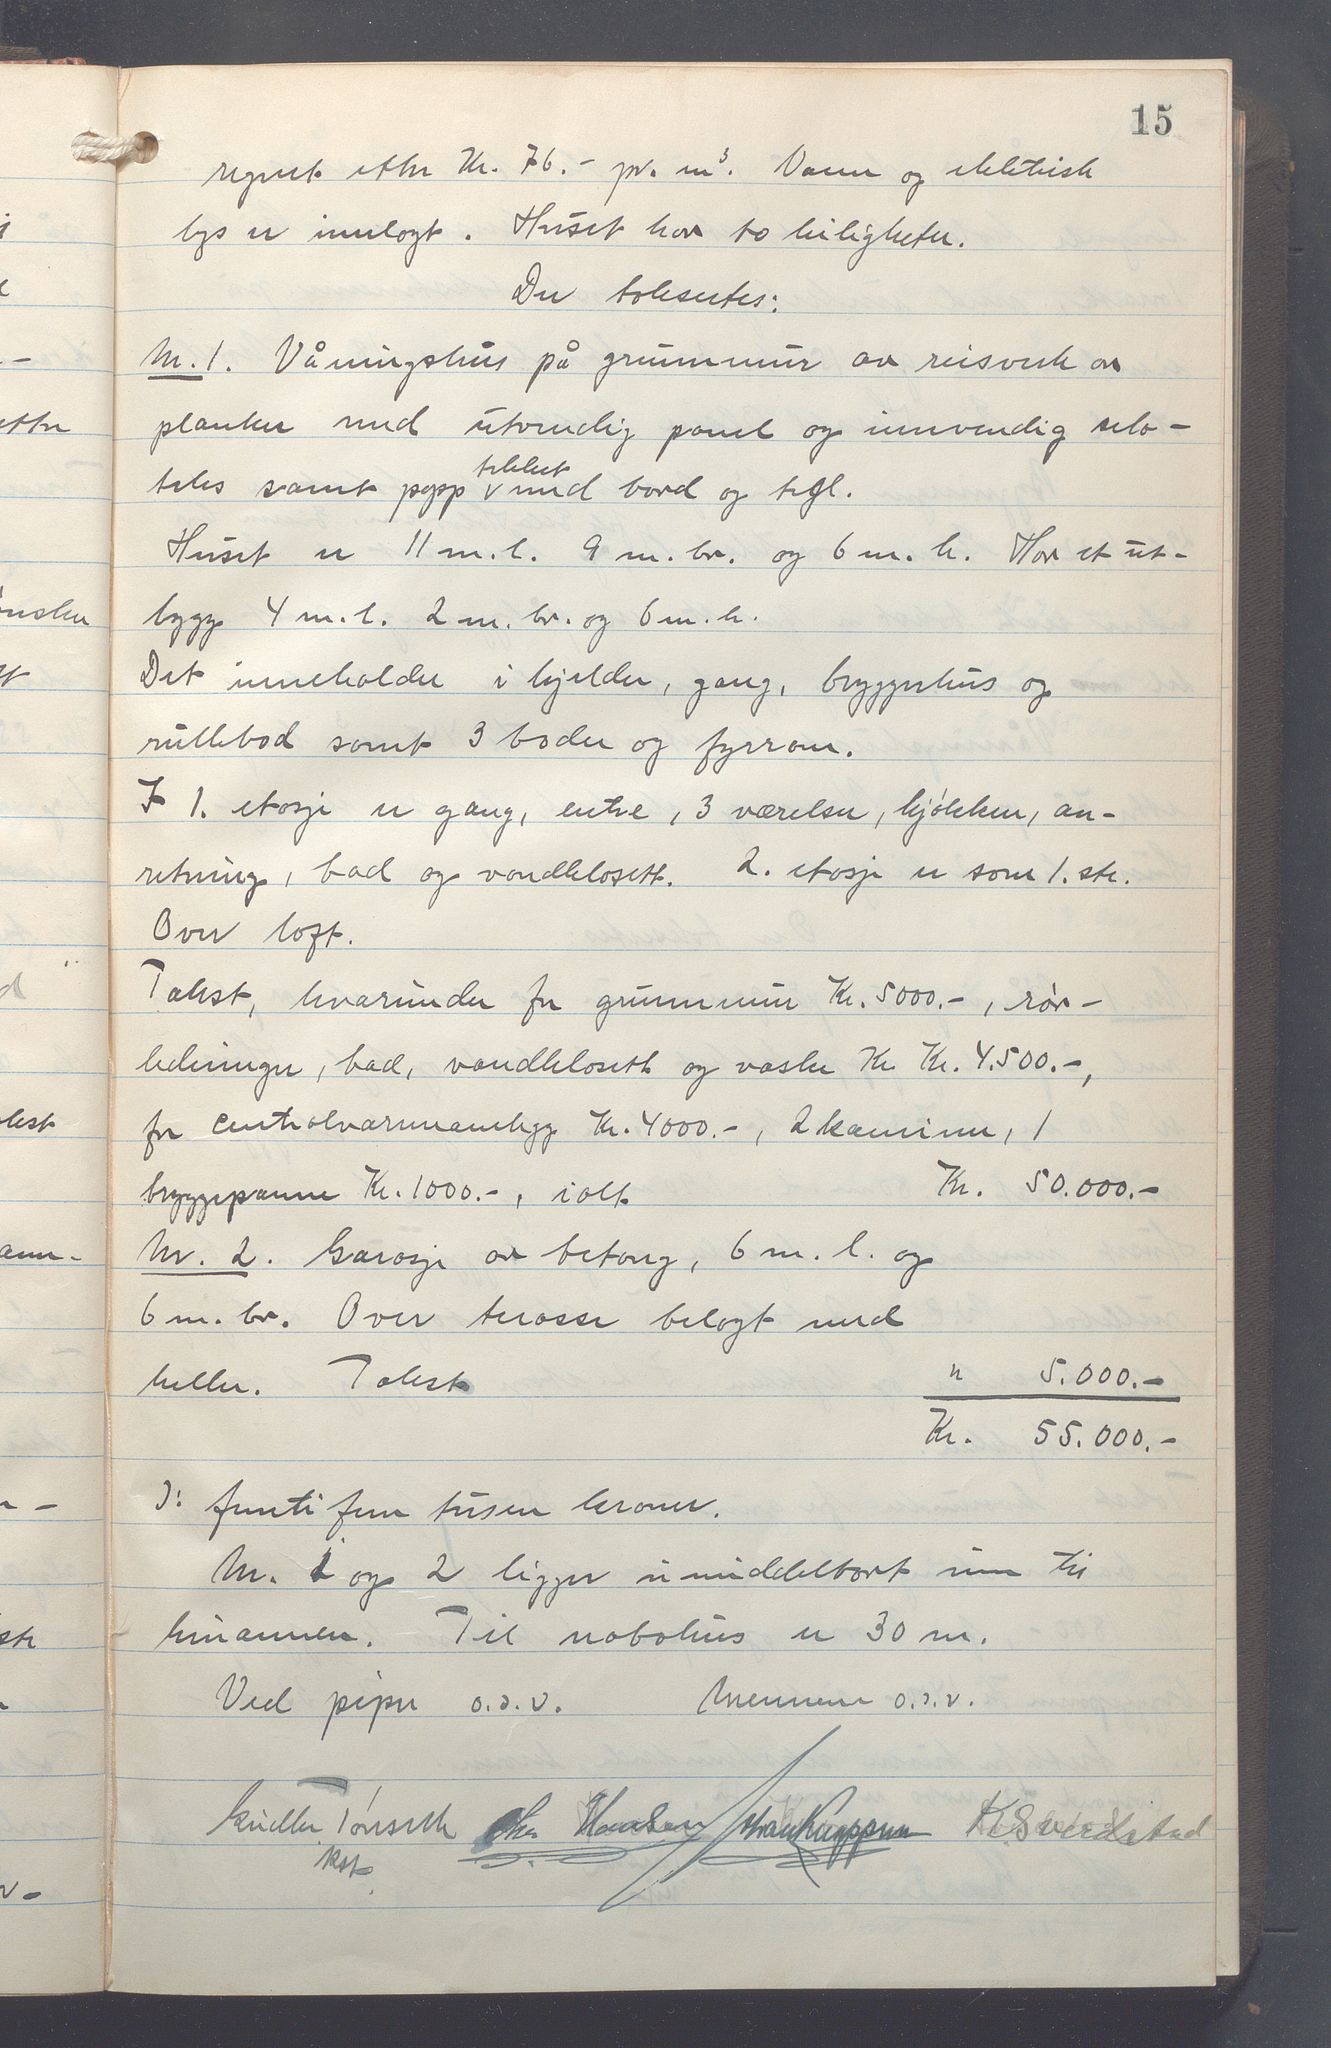 15
regnet etter Kr. 76.- pr. m³. Vann og elektrisk
lys er innlagt. Huset har to leiligheter.
Der takseertes:
Nr. 1. Våningshus på grunnmur av reisverk av
planker med utvendig panel og innvendig celo-
teks samt papp tekket med bord og tegl.
Huset er 11 m. l. 9 m. br. og 6 m. h. Har et ut-
bygg 4 m. l. 2 m. br. og 6 m. h.
Det inneholder i kjelder, gang, bryggerhus og
rullebod samt 3 boder og fyrrom.
I 1. etasje er gang, entre, 3 værelser, kjøkken, an-
retning, bad og vandklosett. 2. etasje er som 1. ste.
Over loft.
Takst, hvorunder for grunnmur Kr. 5000.-, rør-
ledninger, bad, vandklosett og vasker Kr. Kr. 4.500.-,
for centralvarmeanlegg Kr. 4000.-, 2 kaminer, 1
bryggepanne Kr. 1000.-, ialt Kr. 50.000.-
Nr. 2. Garasje av betong, 6 m. l. og
6 m. br. Over terasse belagt med
heller. Takst " 5.000.-
Kr. 55.000.-
ɔ: femti fem tusen kroner.
Nr. 1 og 2 ligger umiddelbart inn til
hinannen. Til nabohus er 30 m.
Ved piper o.s.v. Mennene o.s.v.
Tønseth Hansen K. Sverdstad
kst.